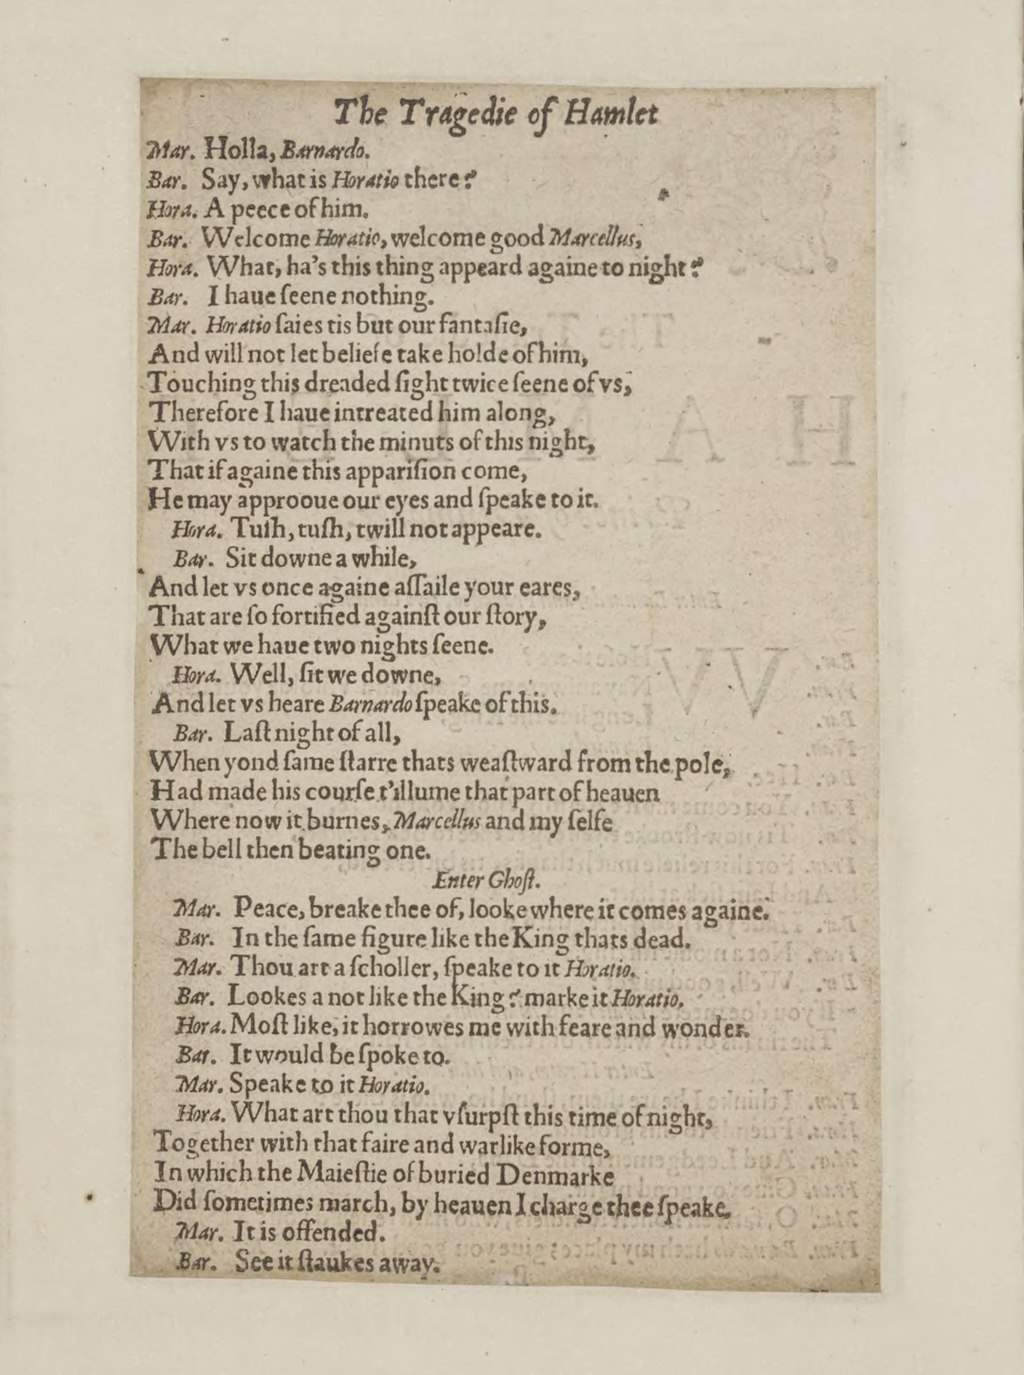 The Tragedie of Hamlet
Mar. Holla, Barnardo.
Bar. Say, what is Horatio there?
Hora. A peece of him.
Bar. Welcome Horatio, welcome good Marcellus,
Hora. What, ha's this thing appeard againe to night?
Bar. I haue ſeene nothing.
Mar. Horatio ſaies tis but our fantaſie,
And will not let beliefe take holde of him,
Touching this dreaded ſight twice ſeene of vs,
Therefore I haue intreated him along,
With vs to watch the minuts of this night,
That if againe this appariſion come,
He may approoue our eyes and ſpeake to it.
Hora. Tuſh, tuſh, twill not appeare.
Bar. Sit downe a while,
And let vs once againe aſſaile your eares,
That are ſo fortified againſt our ſtory,
What we haue two nights ſeene.
Hora. Well, ſit we downe,
And let vs heare Barnardo ſpeake of this.
Bar. Laſt night of all,
When yond ſame ſtarre thats weaſtward from the pole,
Had made his courſe t'illume that part of heauen
Where now it burnes, Marcellus and my ſelfe
The bell then beating one.
Enter Ghoſt.
Mar. Peace, breake thee of, looke where it comes againe.
Bar. In the ſame figure like the King thats dead.
Mar. Thou art a ſcholler, ſpeake to it Horatio.
Bar. Lookes a not like the King? marke it Horatio.
Hora. Moſt like, it horrowes me with feare and wonder.
Bar. It would be ſpoke to.
Mar. Speake to it Horatio.
Hora. What art thou that vſurpſt this time of night,
Together with that faire and warlike forme,
In which the Maieſtie of buried Denmarke
Did ſometimes march, by heauen I charge thee ſpeake.
Mar. It is offended.
Bar. See it ſtaukes away.